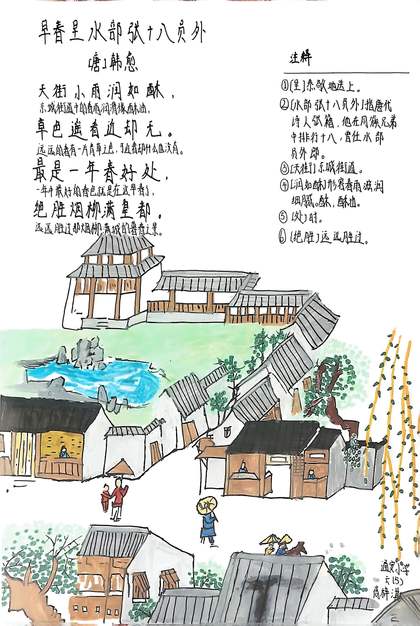 早春呈水部张十八员外
[唐]韩愈
天街小雨润如酥，
京城街道中的春雨润滑像酥油，
草色遥看近却无。
远远的看有一片青草之色，
最是一年春好处，
一年中最好的春色就是在这早春了，
绝胜烟柳满皇都。
远远胜过那烟柳满城的暮春之景。
注释
①[呈]恭敬地送上。
②[水部张十八员外]指唐代
诗人张籍，他在同族兄弟
中排行十八，曾任水部
员外郎。
③[天街]京城街道。
④[润如酥]形容春雨滋润
细腻。酥，酥油。
⑤[处]时。
⑥[绝胜]远远胜过。